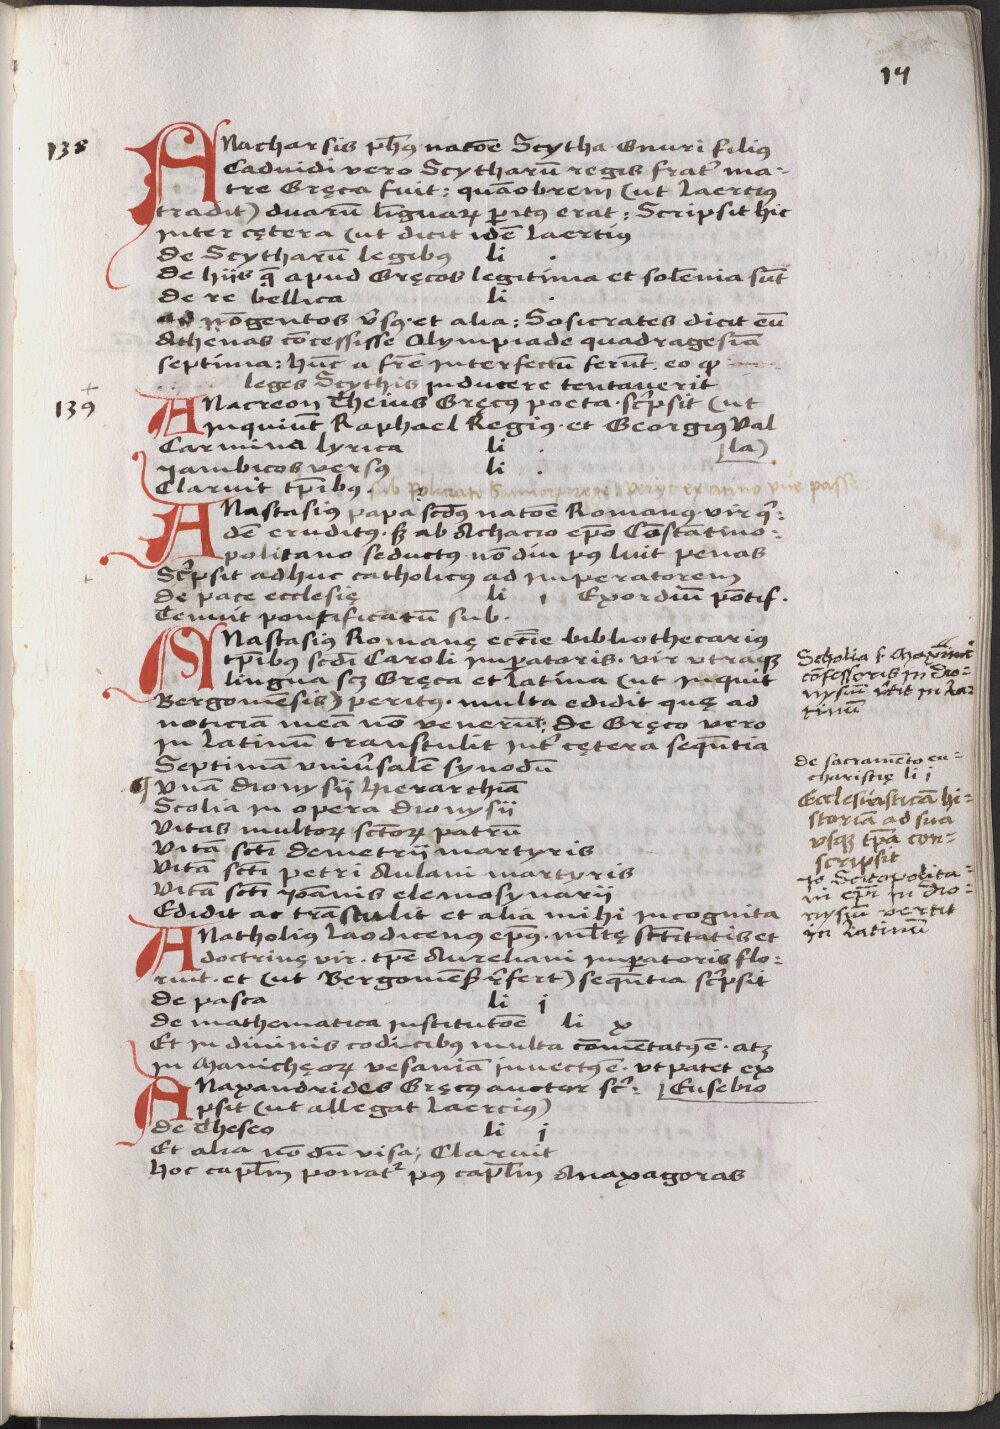 14
138
ANacharsis ph̄s natōe Scytha Gnuri filiꝰ
Caduidi vero Scytharū regis frat' ma-
tre Gręca fuit: quāobrem (ut Laertiꝰ
tradit) duarū linguaꝝ peritꝰ erat: Scripsit hic
inter cętera (ut dicit idē Laertiꝰ
de Scytharū legibꝰ li .
de hiis q̄ apud Gręcos legitima et solēnia sūt
de re bellica li .
ad nōgentos v̄sꝰ et alia: Sosicrates dicit eū
Athenas cōcessisse Olympiade quadragesīa
septima: hūc a frē interfectū ferūt eo ꝙ
leges Scythis inducere tentaverit
139
ANacreon Theius Gręcꝰ poeta sc'psit (ut
inquiūt Raphael Regiꝰ et Georgiꝰ Val
Carmina lyrica li . (la)
Iambicos versꝰ li .
Claruit tp̄ibꝰ. sub Policrate Samioꝝ rege
ANastasiꝰ papa scdꝰ natōe Romanꝰ vir q'-
dē eruditꝰ. sꝫ ab Achacio ep̄o Cōstantino-
politano seductꝰ nō diu pꝰ luit penas
Sc'psit adhuc catholicꝰ ad imperatorem
de pace ecclesię li 1 Exordiū pōtif.
Tenuit pontificatū sub.
ANastasiꝰ Romanę eccīe bibliothecariꝰ
tp̄ibꝰ scdi Caroli imperatoris. vir vtraqꝫ
lingua scꝫ Gręca et Latina (ut inquit
Bergomēsis) peritꝰ. multa edidit quę ad
noticiā meā nō venerūt: de Gręco vero
in Latinū transtulit int' cętera sequētia
Septimā vniūsalē synodū
¶ vnā Dionysii hierarchiā
Scolia in opera Dionysii
vitas multoꝝ sctōꝝ patrū
vitā sctī Demetrii martyris
vitā sctī petri Aulani martyris
vitā sctī ioānis elemosynarii
Edidit ac trāstulit et alia mihi incognita
ANatholiꝰ Laodicenꝰ ep̄ꝰ. mltę sctītatis et
doctrinę vir. tp̄e Aureliani imperatoris flo-
ruit. et (ut Bergomēs r̄fert) sequētia sc'psit
de pasca li j
de mathematica institutōe li x
Et in divinis codicibꝰ multa cōmētatꝰ ē. atqꝫ
in Manichęoꝝ vesaniā invectꝰ ē. vt patet ex
ANaxandrides Gręcꝰ auctor sc'- (Eusebio
psit (ut allegat Laerciꝰ)
de Theseo li j
Et alia nō dū visa: Claruit
hoc cap̄lm ponat² pꝰ cap̄lm Anaxagoras
Scholia s. Maximi
cōfessoris in Dio-
nysiū v̄tit in La-
tinū
de sacramēto eu-
charistię li j
Ecclesiasticā hi-
storiā ad sua
vsqꝫ tp̄a con-
scripsit
Io Scitopolita-
ni ep̄i in Dio-
nysiū vertit
in Latinū